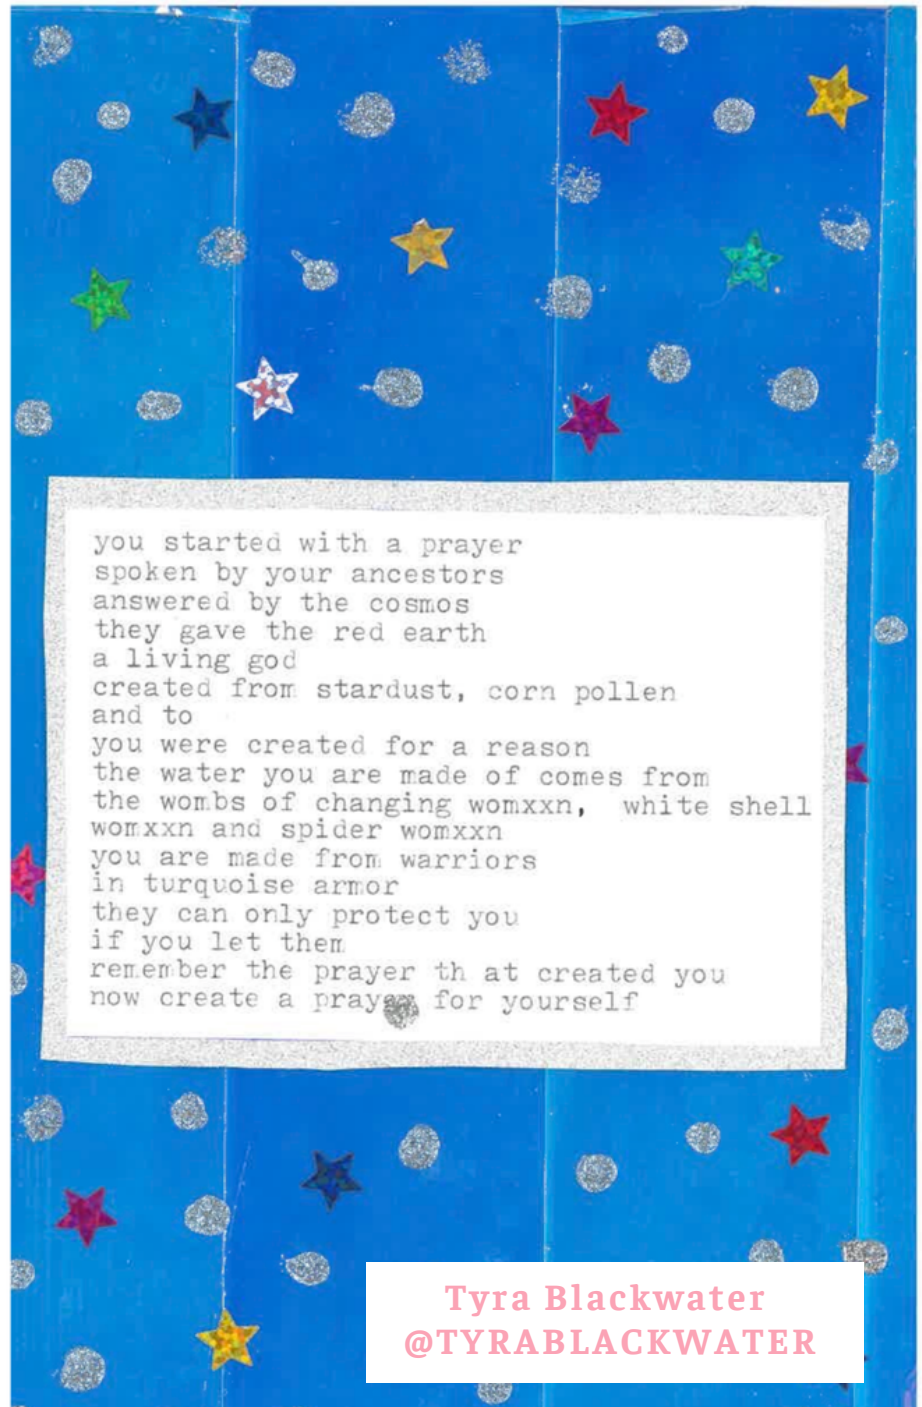 you started with a prayer
spoken by your ancestors
answered by the cosmos
they gave the red earth
a living god
created from stardust, corn pollen
and to
you were created for a reason
the water you are made of comes from
the wombs of changing womxxn, white shell
womxxn and spider womxxn
you are made from warriors
in turquoise armor
they can only protect you
if you let them
remember the prayer th at created you
now create a prayer for yourself
Tyra Blackwater
@TYRABLACKWATER